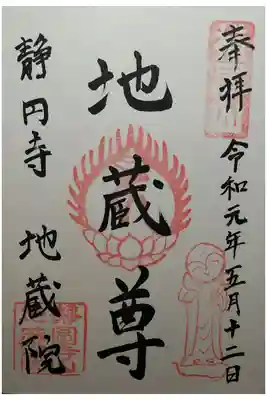 奉拝
令和元年五月十二日
地蔵尊
静円寺 地蔵院